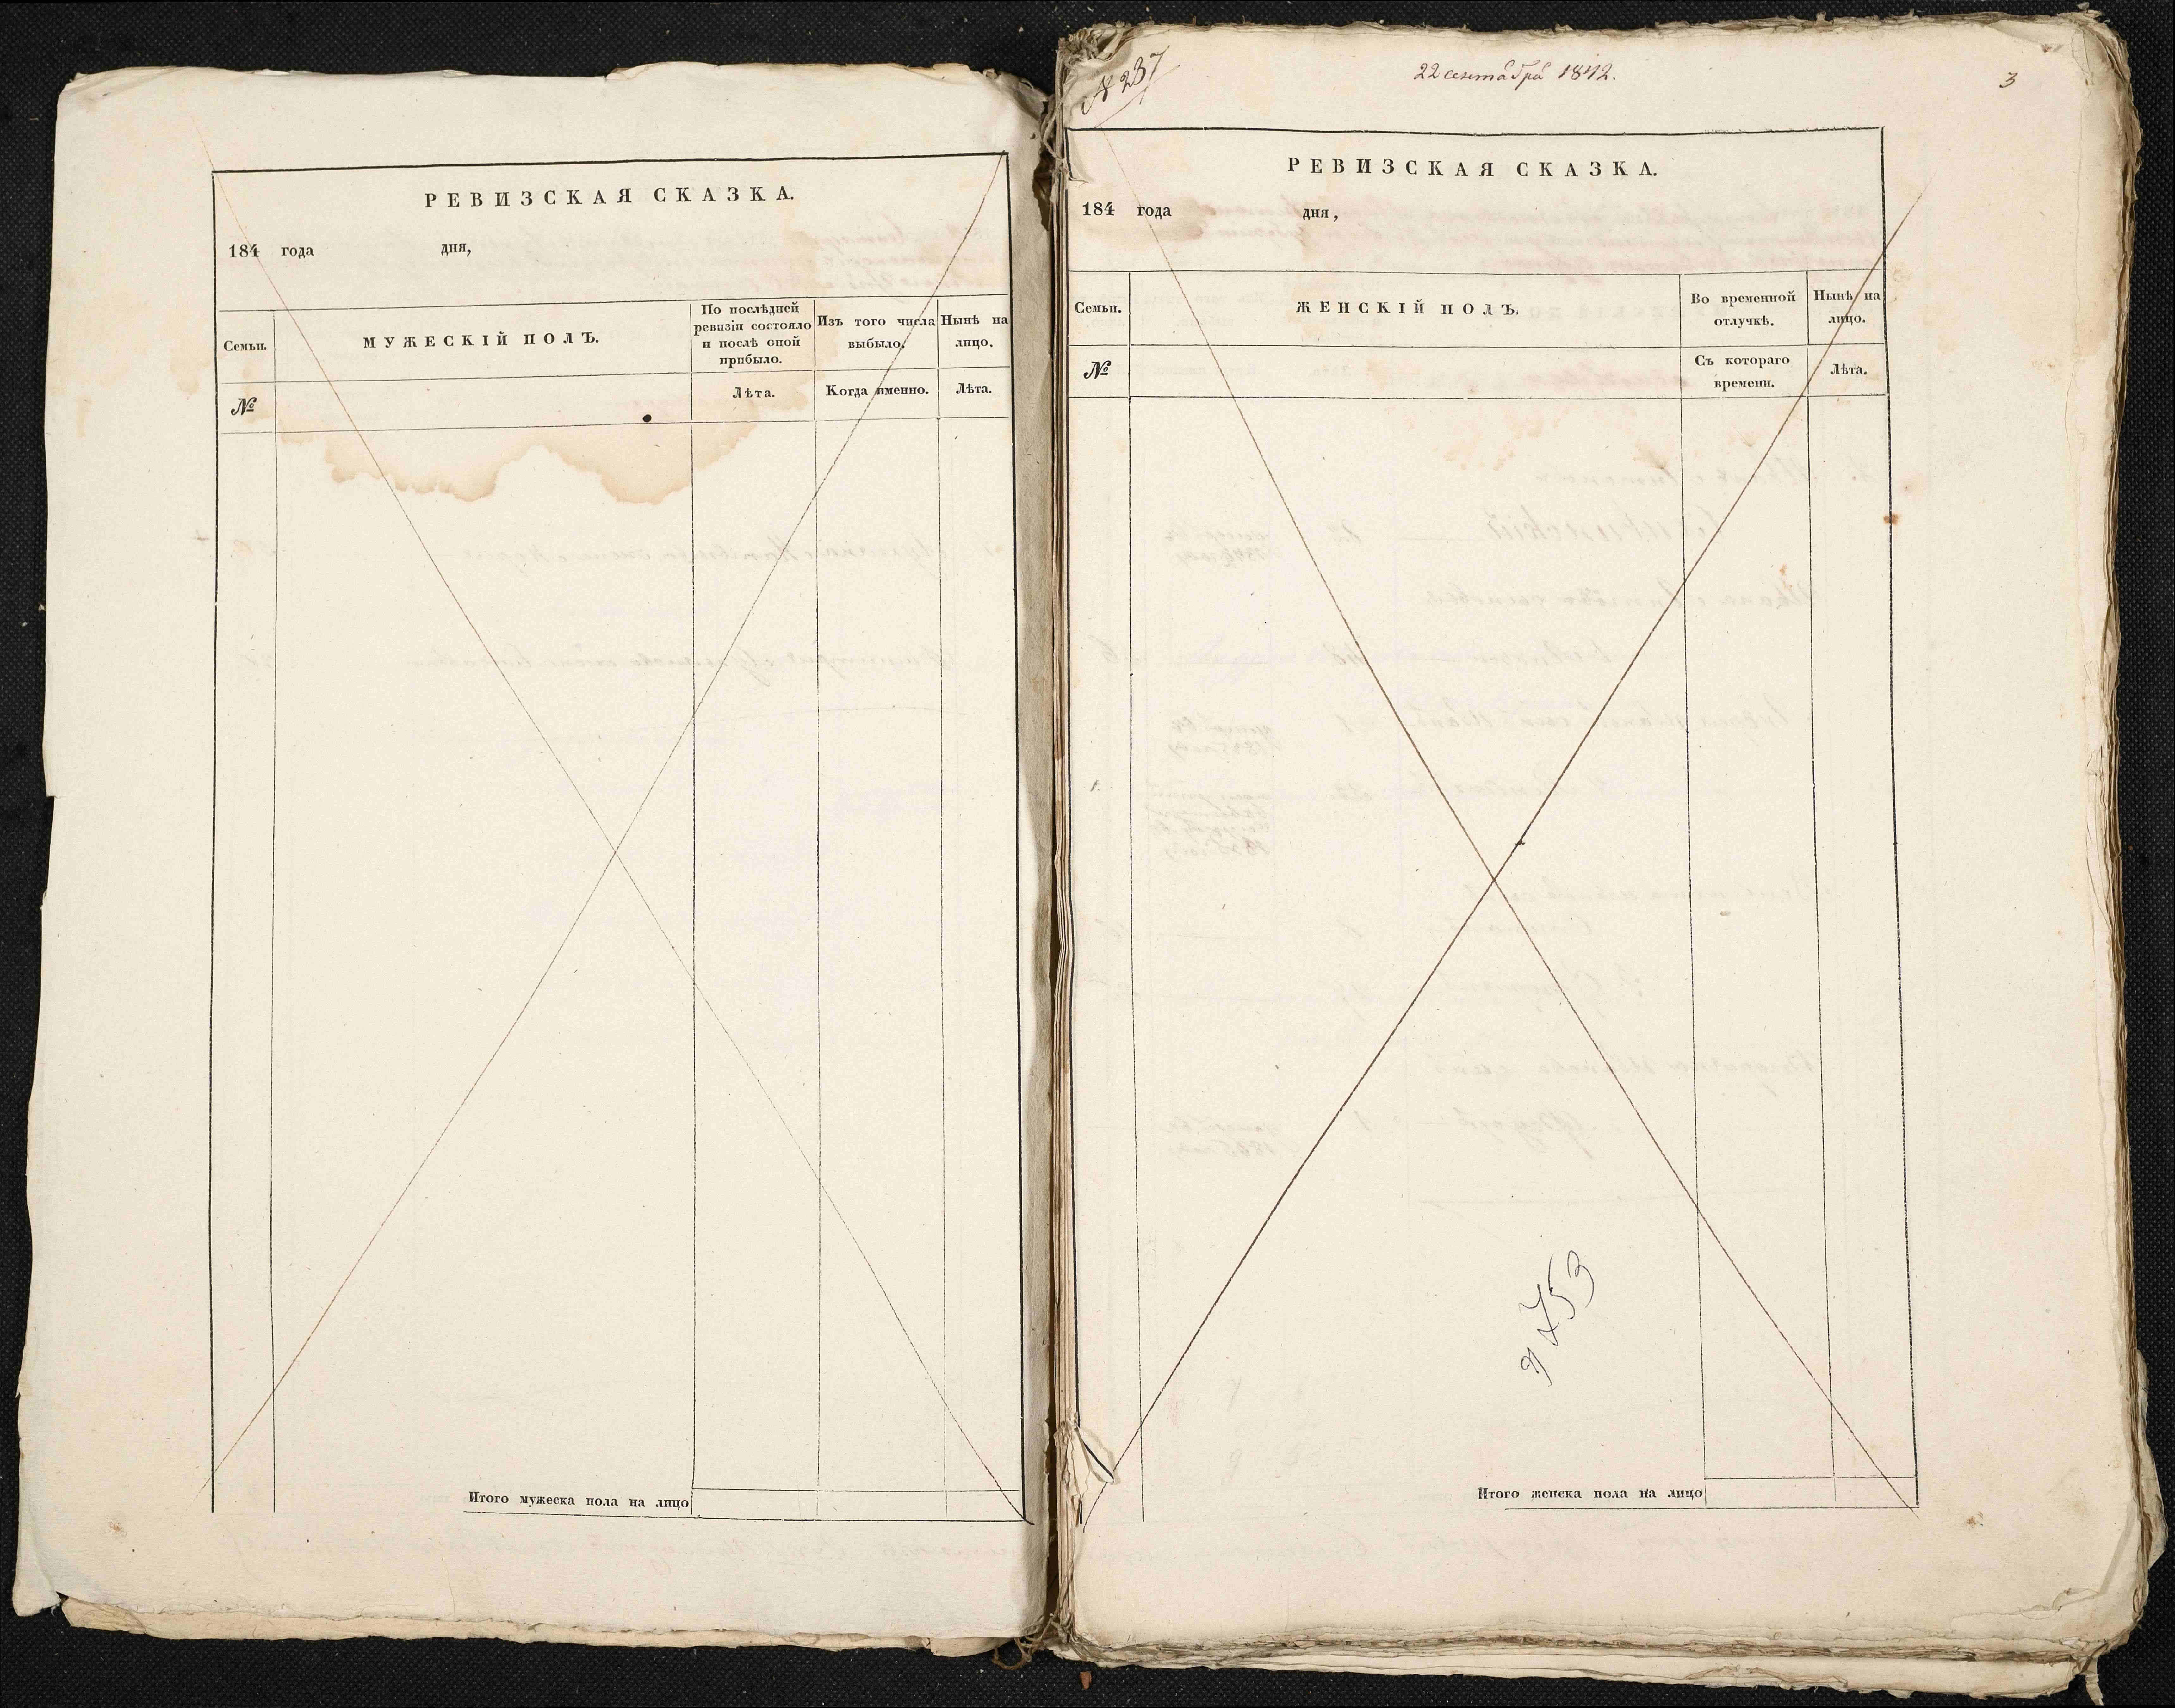 РЕВИЗСКАЯ СКАЗКА.
184 года дня,
Семьи.
МУЖЕСКІЙ ПОЛЪ.
По послѣдней
ревизіи состояло
и послѣ оной
прибыло.
Изъ того числа
выбыло.
Нынѣ на
лицо.
№
Лѣта.
Когда именно.
Лѣта.
Итого мужеска пола на лицо
№ 237
22 сентабра 1842.
3
РЕВИЗСКАЯ СКАЗКА.
184 года дня,
Семьи.
ЖЕНСКІЙ ПОЛЪ.
Во временной
отлучкѣ.
Нынѣ на
лицо.
№
Съ котораго
времени.
Лѣта.
Итого женска пола на лицо